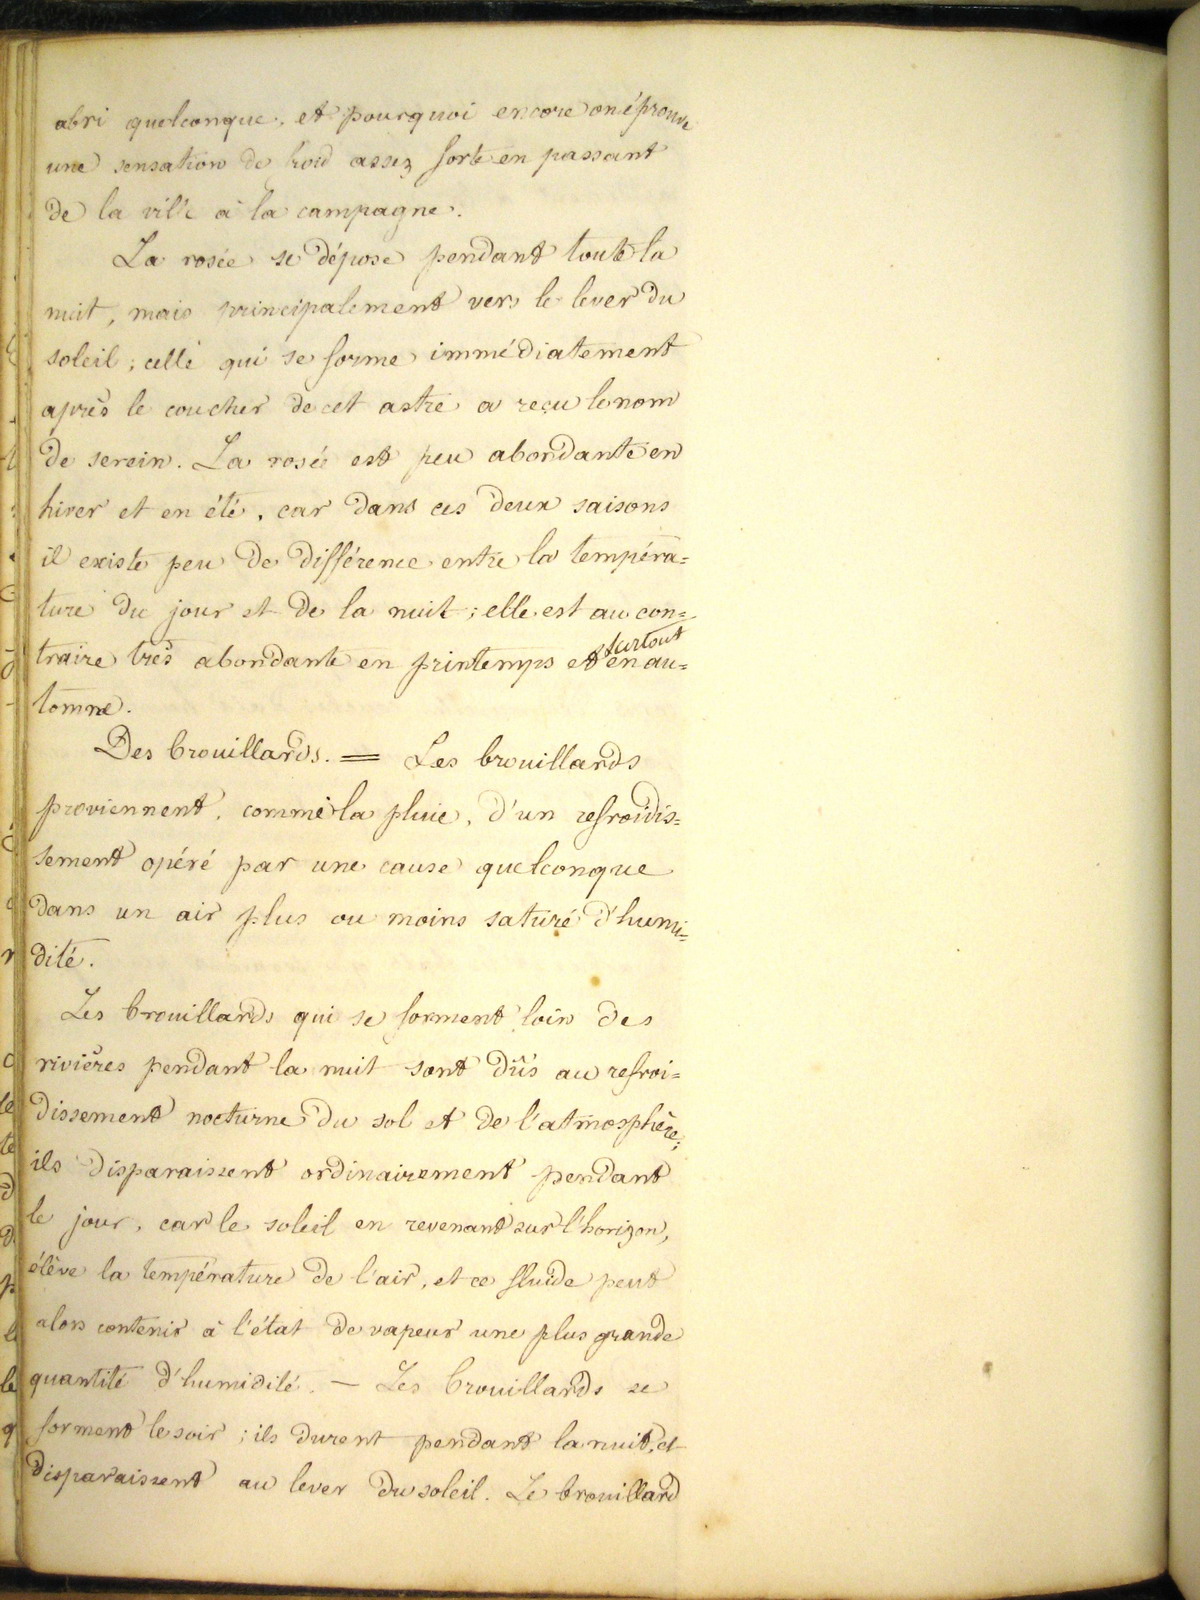 abri quelconque, et pourquoi encore on éprouve
une sensation de froid assez forte en passant
de la ville à la campagne.
La rosée se dépose pendant toute la
nuit, mais principalement vers le lever du
soleil ; celle qui se forme immédiatement
après le coucher de cet astre a reçu le nom
de serein. La rosée est peu abondante en
hiver et en été, car dans ces deux saisons
il existe peu de différence entre la tempéra=
ture du jour et de la nuit ; elle est au con=
traire très abondante en printemps et surtout en au=
tomne.
Des brouillards. = Les brouillards
proviennent, comme la pluie, d'un refroidis=
sement opéré par une cause quelconque
dans un air plus ou moins saturé d'humi=
dité.
Les brouillards qui se forment loin des
rivières pendant la nuit sont dûs au refroi=
dissement nocturne du sol et de l'atmosphère ;
ils disparaissent ordinairement pendant
le jour, car le soleil en revenant sur l'horizon,
élève la température de l'air, et ce fluide peut
alors contenir à l'état de vapeur une plus grande
quantité d'humidité. — Les brouillards se
forment le soir ; ils durent pendant la nuit, et
disparaissent au lever du soleil. Le brouillard